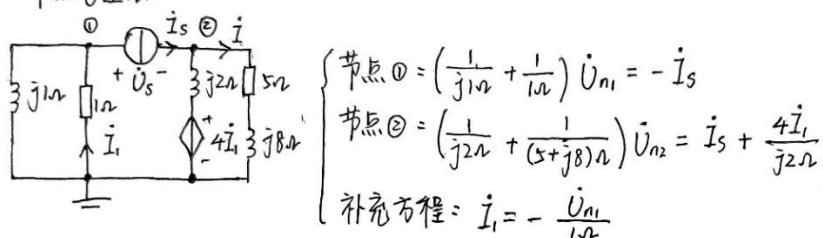 ① İs ② İ
+ U̇s -
j1Ω 1Ω j2Ω 5Ω
İ₁ + 4İ₁ - j8Ω
节点①=(1/j1Ω + 1/1Ω) U̇n1 = -İs
节点②=(1/j2Ω + 1/(5+j8)Ω) U̇n2 = İs + 4İ₁/j2Ω
补充方程: İ₁ = - U̇n1/1Ω